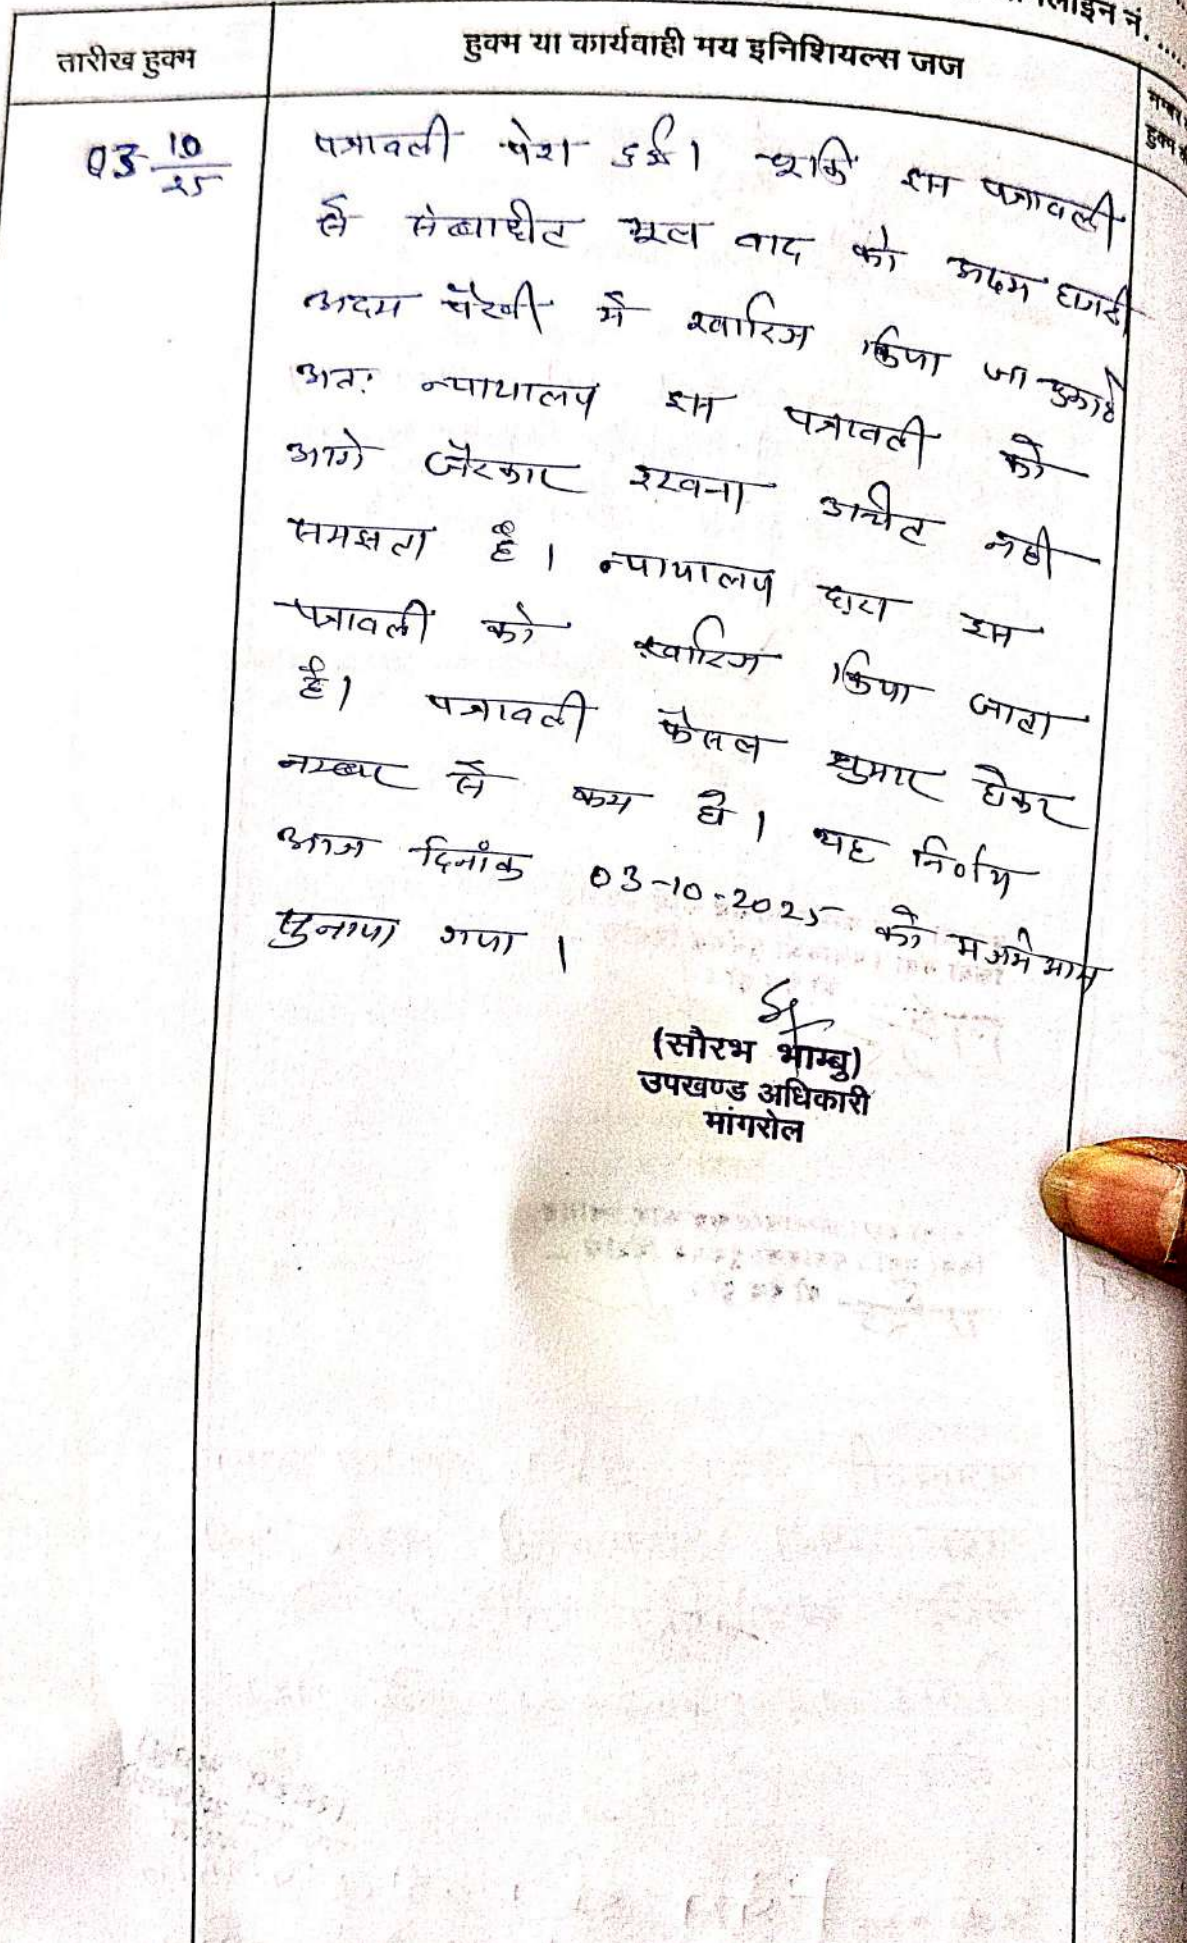 लाइन नं. .....
तारीख हुक्म
हुक्म या कार्यवाही मय इनिशियल्स जज
नम्बर
हुक्म
03-10/25
पत्रावली पेश हुई। चूकिं इस पत्रावली
से संबाधीत मूल वाद को अदम हाजरी
अदम पैरवी में खारिज किया जा चुका है
अतः न्यायालय इस पत्रावली को
आगे जैरकार रखना उचीत नही
समझता है। न्यायालय द्वारा इस
पत्रावली को खारिज किया जाता
है। पत्रावली फैसल शुमार होकर
नम्बर से कम हो। यह निर्णय
आज दिनाँक 03-10-2025 को मजमे आम
सुनाया गया।
(सौरभ भाम्बु)
उपखण्ड अधिकारी
मांगरोल